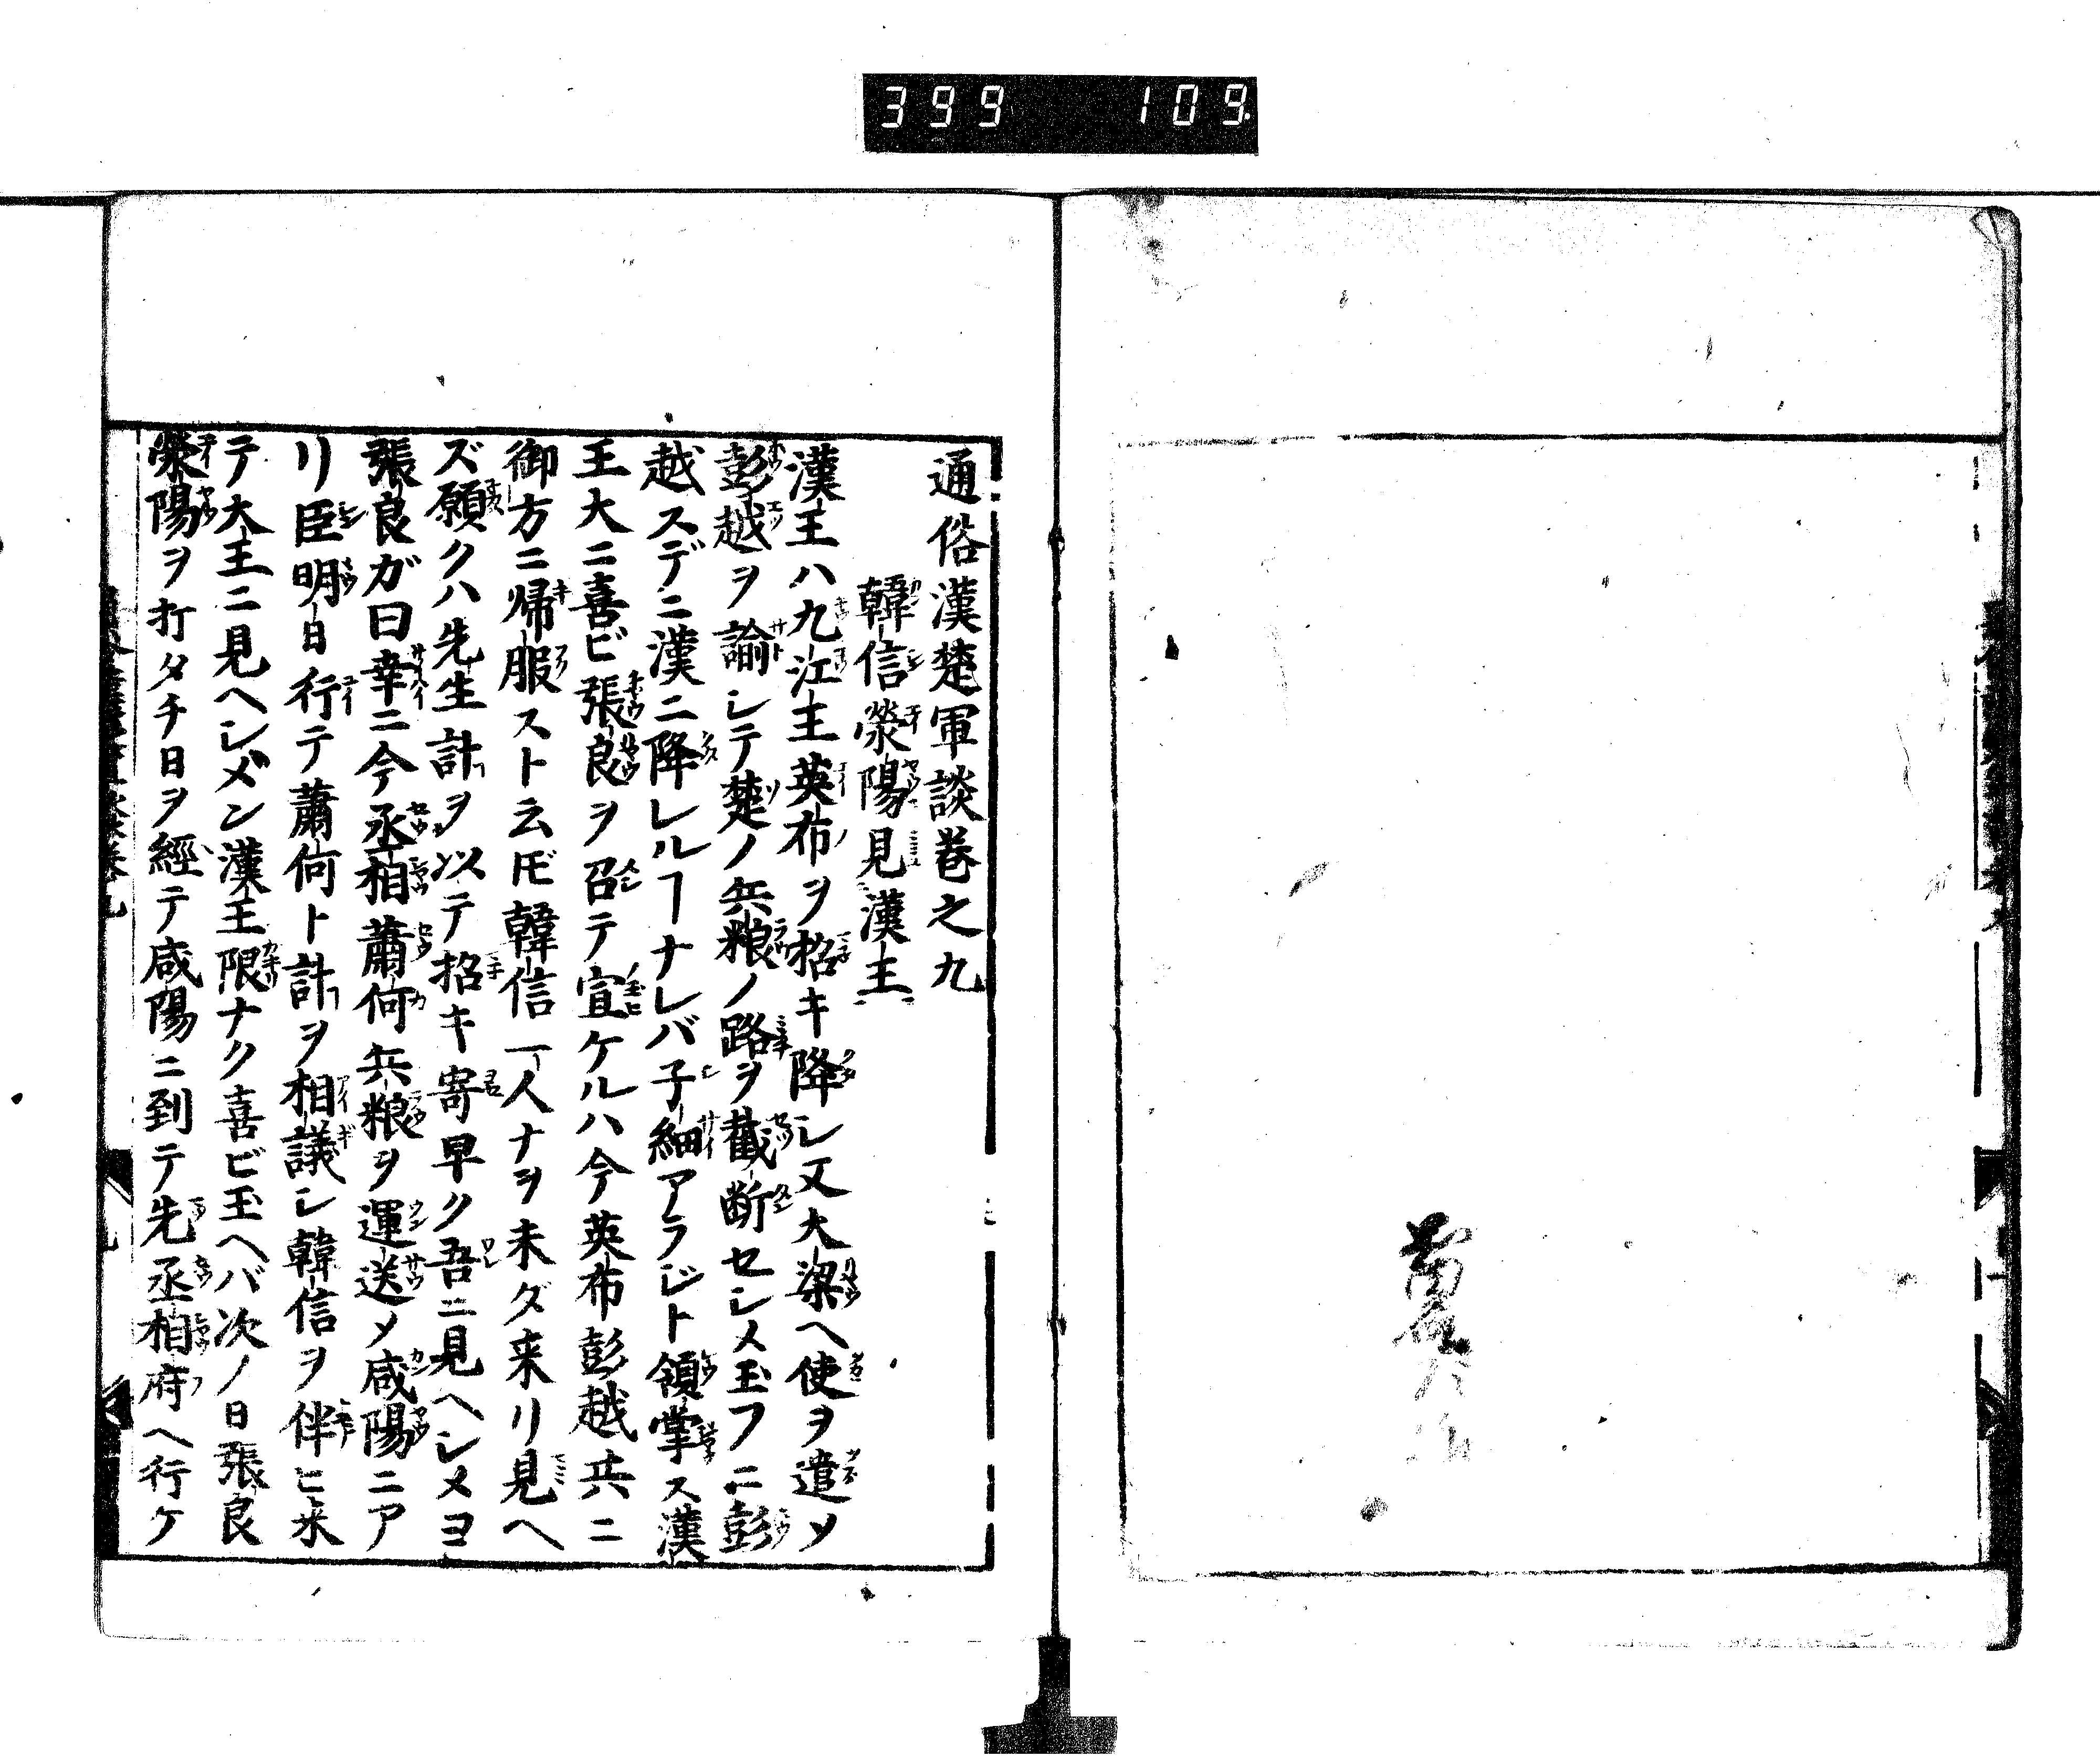 399 109
通俗漢楚軍談巻之九
韓信滎陽見漢王
漢王ハ九江王英布ヲ招キ降シ又大梁ヘ使ヲ遣メ
彭越ヲ諭シテ楚ノ兵粮ノ路ヲ截断セシメ玉フニ彭
越スデニ漢ニ降レルヿナレバ子細アラジト領掌ス漢
王大ニ喜ビ張良ヲ召テ宣ケルハ今英布彭越共ニ
御方ニ帰服スト云𪜈韓信一人ナヲ未ダ来リ見ヘ
ズ願クハ先生計ヲ以テ招キ寄早ク吾ニ見ヘシメヨ
張良ガ曰幸ニ今丞相蕭何兵粮ヲ運送メ咸陽ニア
リ臣明日行テ蕭何ト計ヲ相議シ韓信ヲ伴ヒ来
テ大王ニ見ヘシメン漢王限ナク喜ビ玉ヘバ次ノ日張良
滎陽ヲ打タチ日ヲ經テ咸陽ニ到テ先丞相府ヘ行ケ